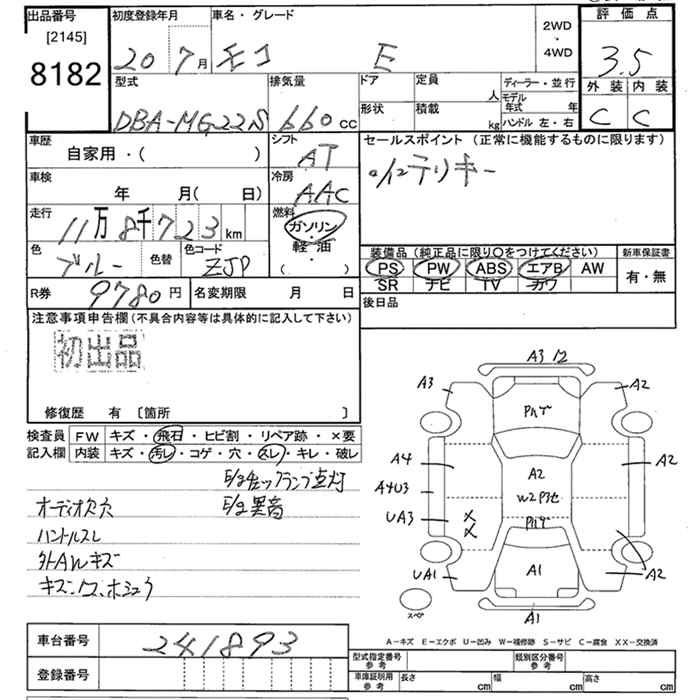 出品番号
[2145]
8182
初度登録年月
20 7月
車名・グレード
モコ E
2WD
・
4WD
評価点
3.5
外装 内装
C C
型式
DBA-MG22S
排気量
660 CC
ドア
形状
定員
人
積載
kg
ディーラー・並行
モデル
年式 年
ハンドル 左・右
車歴
自家用・( )
シフト
AT
セールスポイント (正常に機能するものに限ります)
車検
年 月( 日)
冷房
AAC
走行
11万8千723km
燃料
ガソリン
軽・油
( ・ )
色
ブルー
色替
色コード
ZJP
装備品 (純正品に限り〇をつけてください)
PS PW ABS エアB AW
SR ナビ TV カワ
新車保証書
有・無
R券 9780円
名変期限 月 日
後日品
注意事項申告欄 (不具合内容等は具体的に記入して下さい)
初出品
修復歴 有 〔箇所 〕
検査員
記入欄
FW キズ・飛石・ヒビ割・リペア跡・×要
内装 キズ・汚レ・コゲ・穴・スレ・キレ・破レ
オーディオ欠穴
ハンドルスレ
外AWキズ
A3 12
A3
A2
A4
A2
A2
W2
A4U3
UA3
UA1
A1
A2
A1
スペア
A-キズ E-エクボ U-凹み W-補修跡 S-サビ C-腐食 XX-交換済
車台番号
241893
登録番号
型式指定番号
参考
類別区分番号
参考
車庫証明用
参考
長さ cm
幅 cm
高さ cm